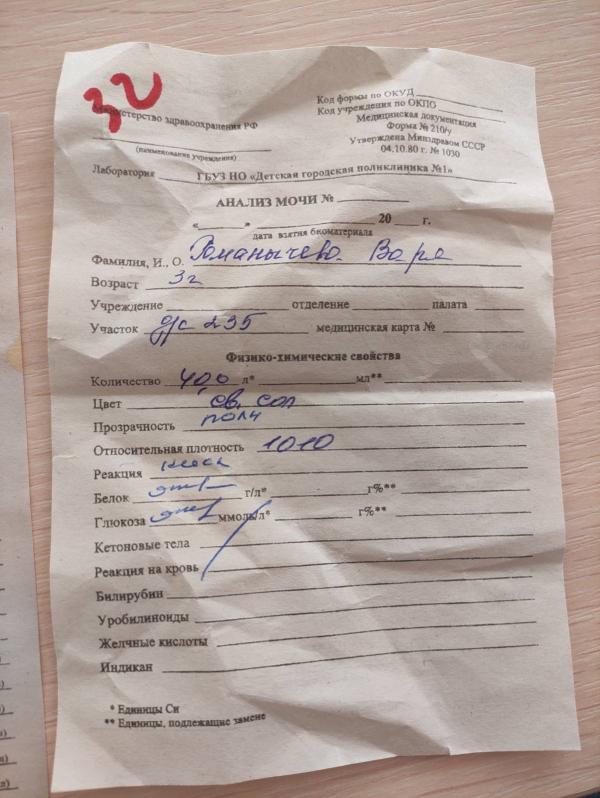 Министерство здравоохранения РФ
(наименование учреждения)
Код формы по ОКУД
Код учреждения по ОКПО
Медицинская документация
Форма № 210/у
Утверждена Минздравом СССР
04.10.80 г. № 1030
Лаборатория ГБУЗ НО «Детская городская поликлиника №1»
АНАЛИЗ МОЧИ №
« » 20 г.
дата взятия биоматериала
Фамилия, И., О. Романычева Варя
Возраст 3г
Учреждение отделение палата
Участок д/с 235 медицинская карта №
Физико-химические свойства
Количество 40,0 л* мл**
Цвет св. сол
Прозрачность полн
Относительная плотность 1010
Реакция кисл
Белок г/л* г%**
Глюкоза ммоль/л* г%**
Кетоновые тела
Реакция на кровь
Билирубин
Уробилиноиды
Желчные кислоты
Индикан
* Единицы Си
** Единицы, подлежащие замене